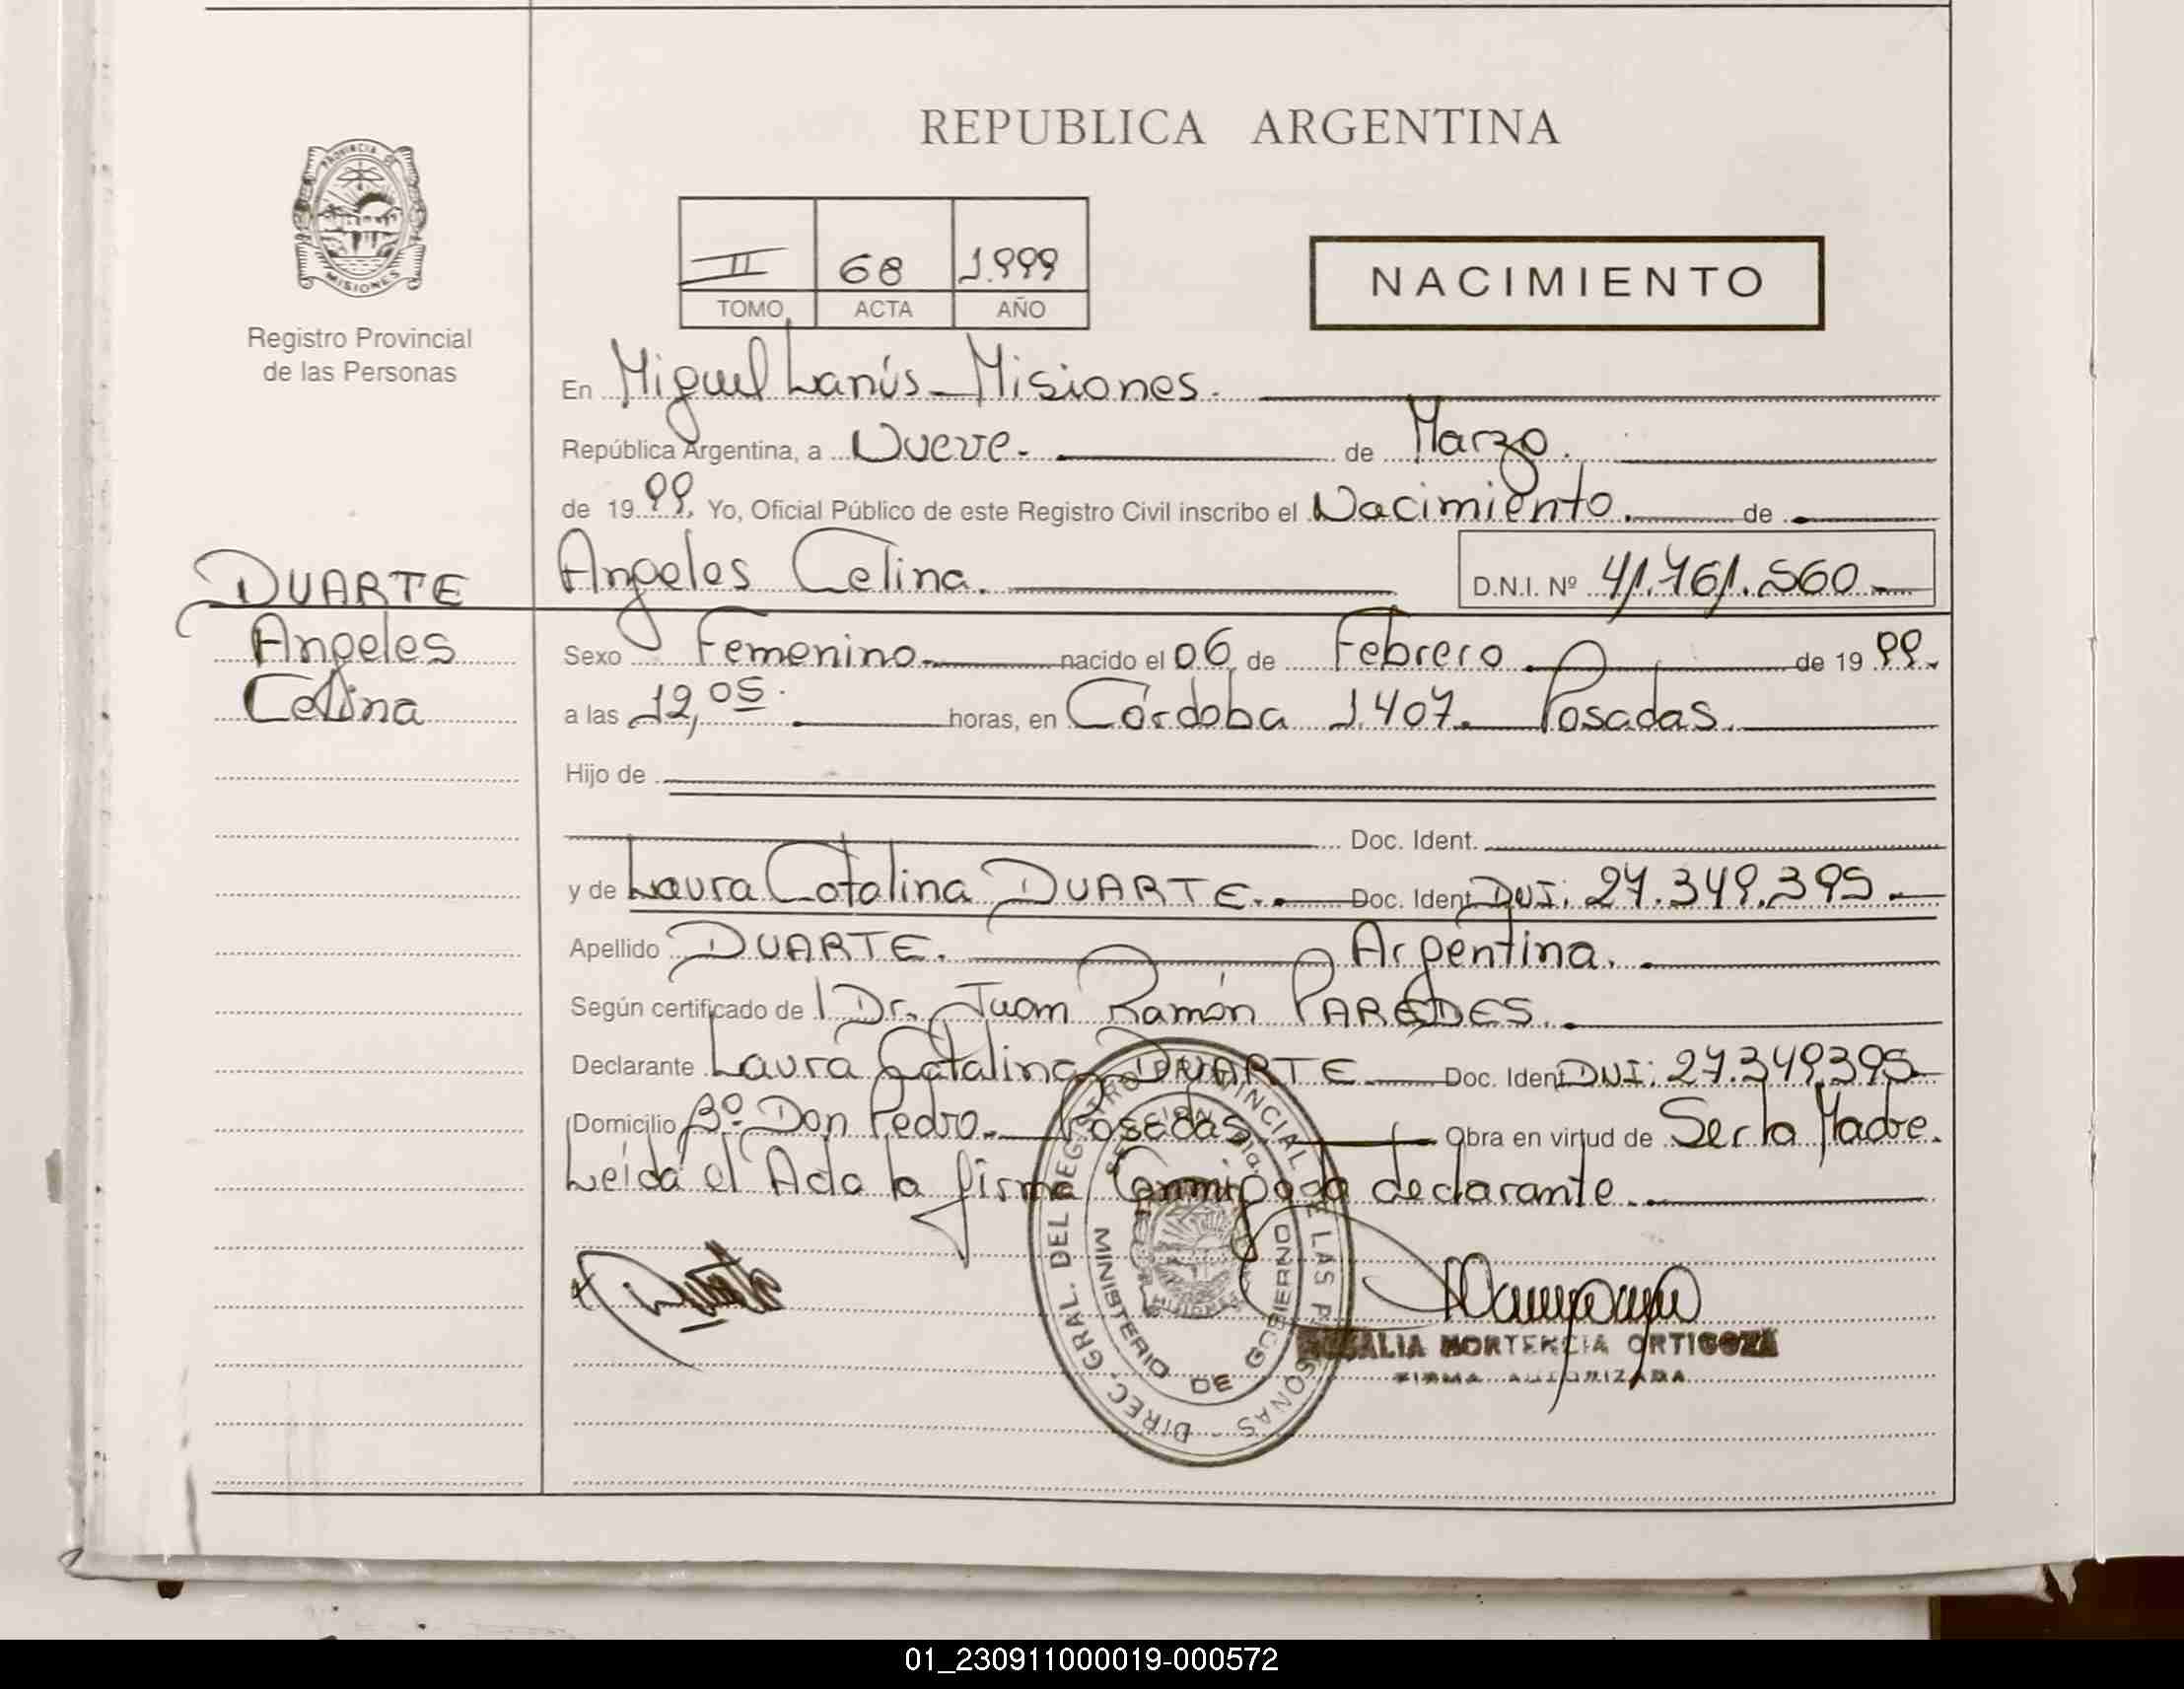 REPUBLICA ARGENTINA
PROVINCIA DE
MISIONES
Registro Provincial
de las Personas
II 68 1.999
TOMO ACTA AÑO
NACIMIENTO
En Miguel Lanús - Misiones.
República Argentina, a Nueve. de Marzo.
de 1999. Yo, Oficial Público de este Registro Civil inscribo el Nacimiento. de
Angeles Celina. D.N.I. Nº 41.761.560
DUARTE
Angeles
Celina
Sexo Femenino nacido el 06 de Febrero de 1999.
a las 12,05. horas, en Córdoba 1.407. Posadas.
Hijo de
Doc. Ident.
y de Laura Catalina DUARTE. Doc. Ident. DNI: 27.349.395.
Apellido DUARTE. Argentina.
Según certificado de Dr. Juan Ramón PAREDES.
Declarante Laura Catalina DUARTE Doc. Ident. DNI: 27.349.395
Domicilio Bº. Don Pedro. Posadas Obra en virtud de Ser la Madre.
Leída el Acta la firma Conmigo la declarante.
Duarte
DIREC. GRAL. DEL REGISTRO PROVINCIAL DE LAS PERSONAS
MINISTERIO DE GOBIERNO
ROSALIA HORTENCIA ORTIGOZA
FIRMA AUTORIZADA
01_230911000019-000572